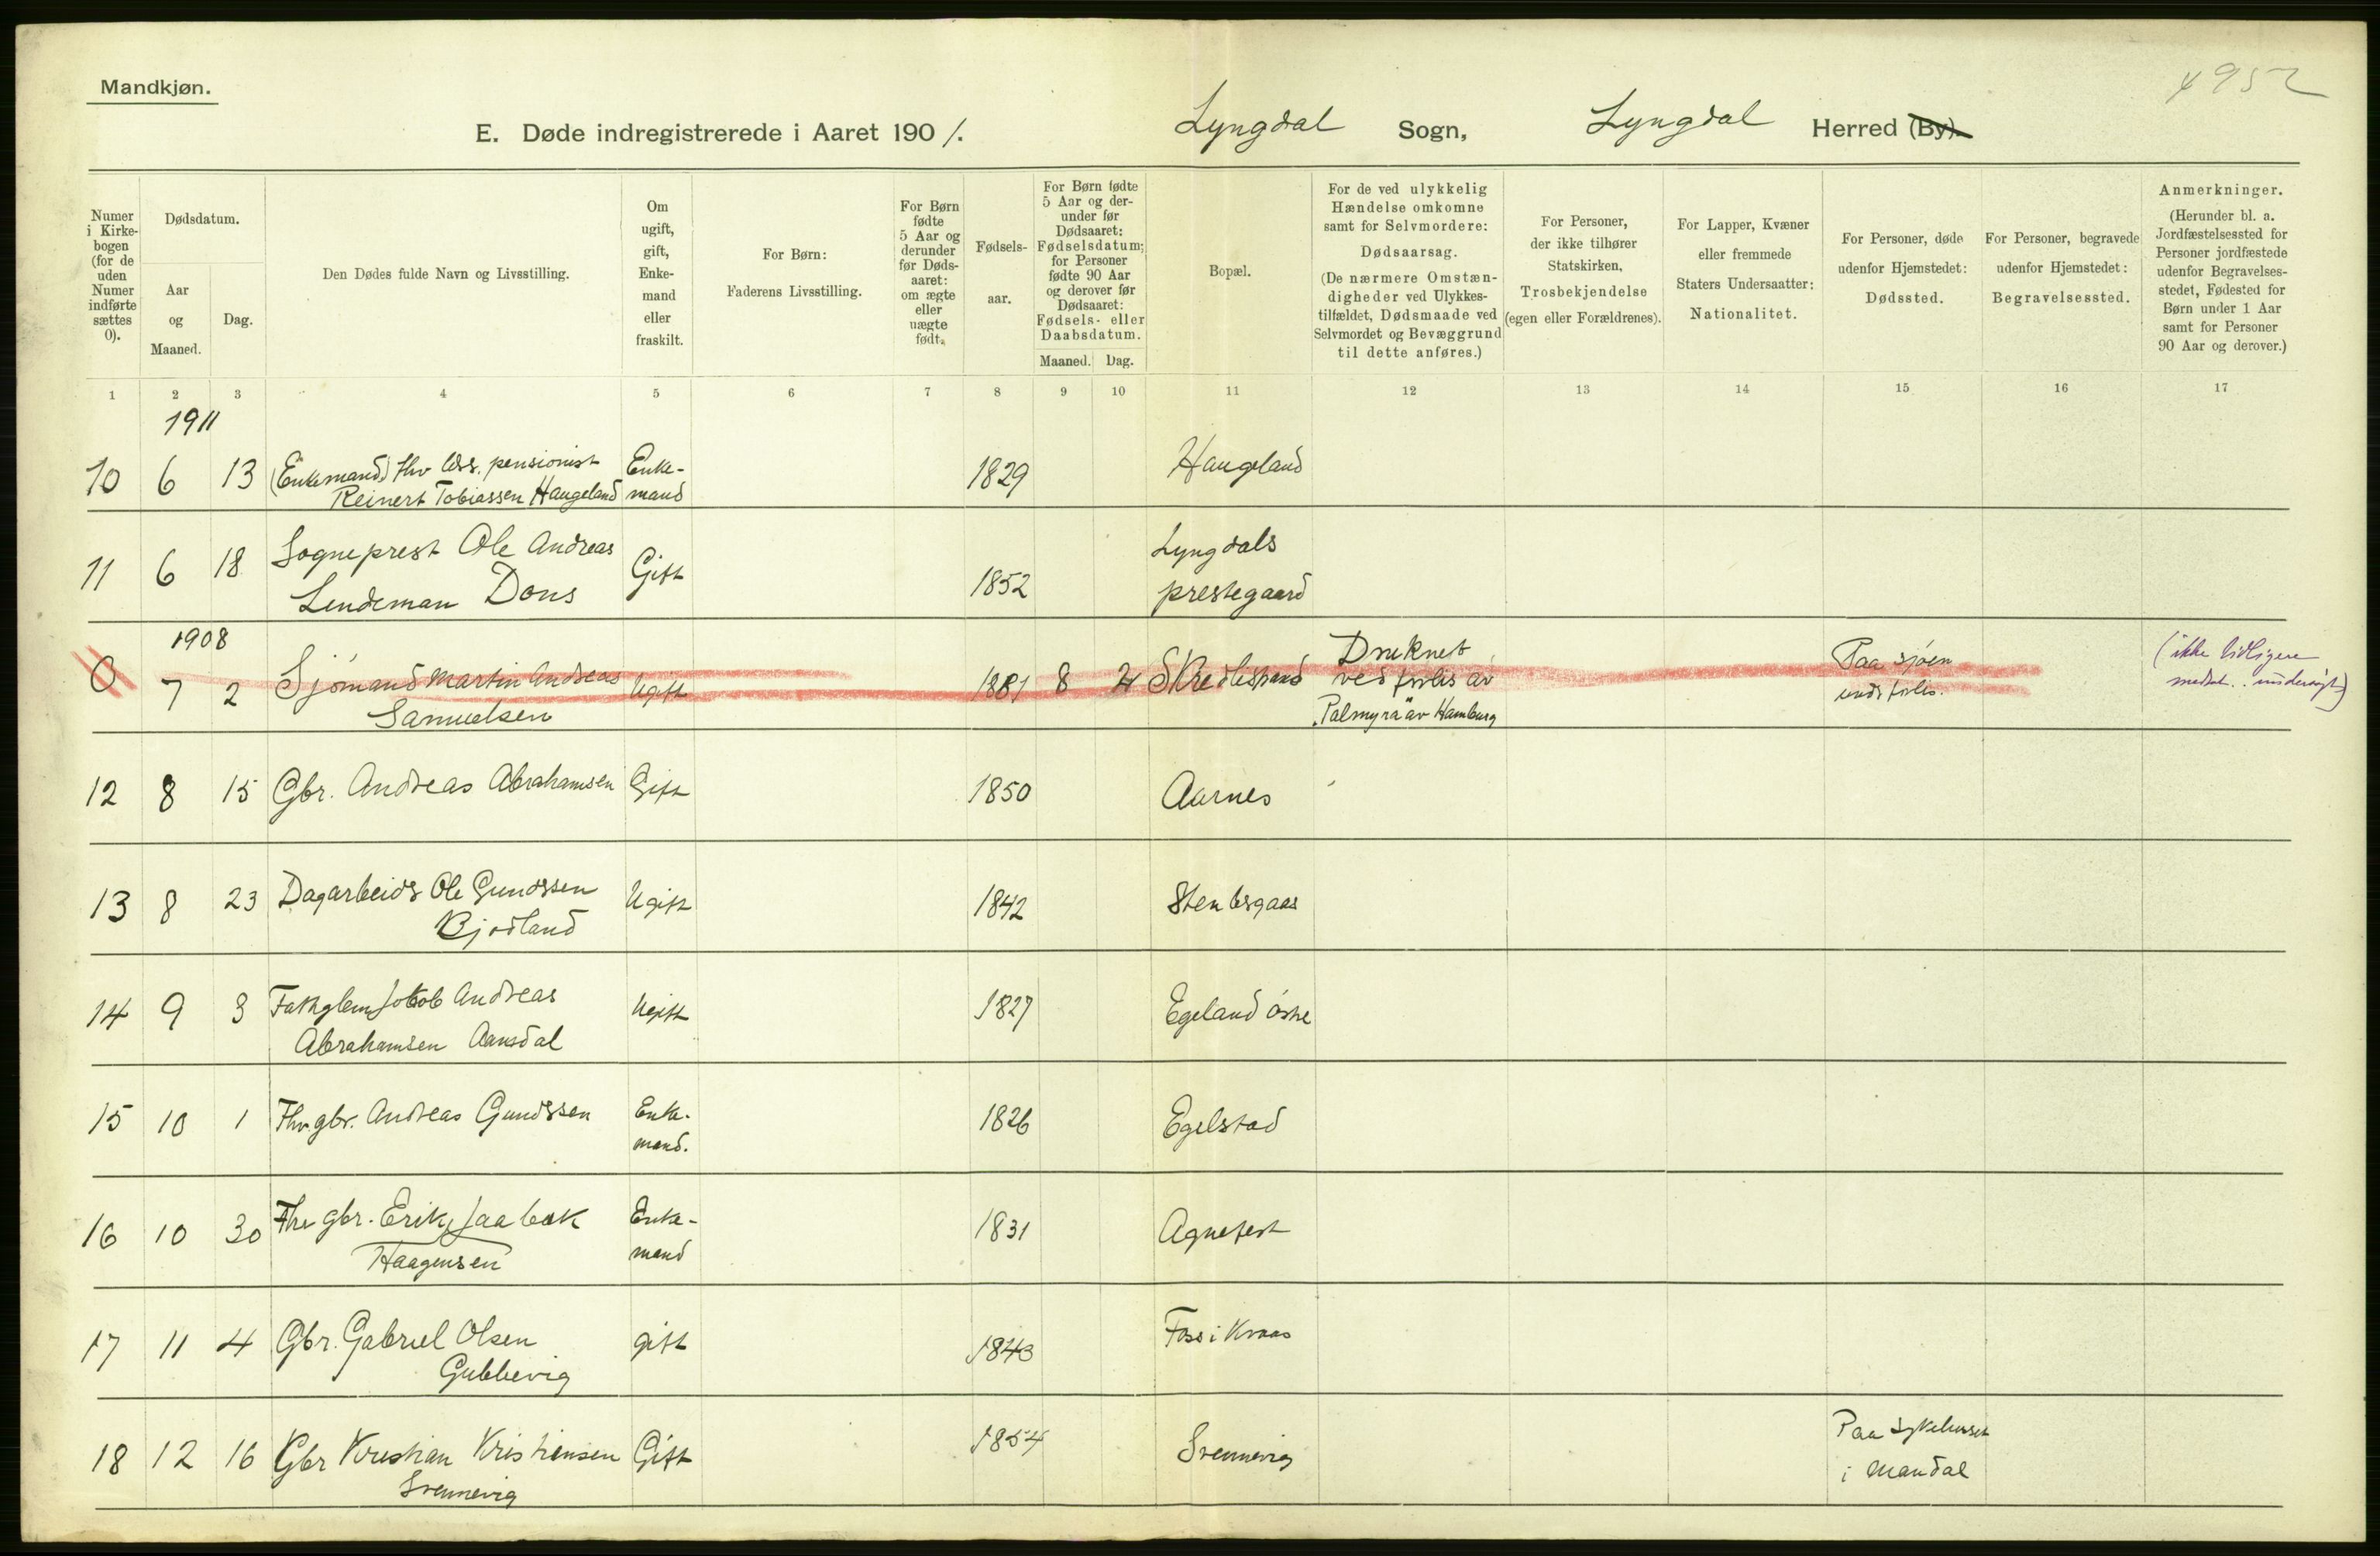 4952
Mandkjøn.
E. Døde indregistrerede i Aaret 1901.
Lyngdal Sogn, Lyngdal Herred (By).
Numer i Kirkebogen (for de uden Numer indførte sættes 0).
Dødsdatum.
Aar og Maaned.
Dag.
Den Dødes fulde Navn og Livsstilling.
Om ugift, gift, Enkemand eller fraskilt.
For Børn: Faderens Livsstilling.
For Børn fødte 5 Aar og derunder før Dødsaaret: om ægte eller uægte født.
Fødselsaar.
For Børn fødte 5 Aar og derunder før Dødsaaret: Fødselsdatum; for Personer fødte 90 Aar og derover før Dødsaaret: Fødsels- eller Daabsdatum.
Maaned. Dag.
Bopæl.
For de ved ulykkelig Hændelse omkomne samt for Selvmordere: Dødsaarsag. (De nærmere Omstændigheder ved Ulykkestilfældet, Dødsmaade ved Selvmordet og Bevæggrund til dette anføres.)
For Personer, der ikke tilhører Statskirken, Trosbekjendelse (egen eller Forældrenes).
For Lapper, Kvæner eller fremmede Staters Undersaatter: Nationalitet.
For Personer, døde udenfor Hjemstedet: Dødssted.
For Personer, begravede udenfor Hjemstedet: Begravelsessted.
Anmerkninger. (Herunder bl. a. Jordfæstelsessted for Personer jordfæstede udenfor Begravelsesstedet, Fødested for Børn under 1 Aar samt for Personer 90 Aar og derover.)
1 2 3 4 5 6 7 8 9 10 11 12 13 14 15 16 17
1911
10 6 13 (Enkemand) fhv. pensionist Enke- 1829 Haugeland
Reinert Tobiassen Haugeland mand
11 6 18 Sogneprest Ole Andreas Gift 1852 Lyngdals
Lindeman Dons prestegaard
1908
0 7 2 Sjömand Martin Andreas Ugift 1881 8 Druknet ved forlis av Paa sjøen (ikke tidligere
Samuelsen "Palmyra" av Hamburg forlis.
12 8 15 Gbr. Andreas Abrahamsen Gift 1850 Aarnes
13 8 23 Dagarbeider Ole Gundersen Ugift 1842
Bjodland
14 9 3 Fatkglem Jakob Andreas Ugift 1827 Egeland östre
Abrahamsen Aamdal
15 10 1 Fhv. gbr. Andreas Gundersen Enke- 1826 Egelstad
mand.
16 10 30 Fhv gbr. Erik Enke- 1831 Agnefest
Haagensen mand
17 11 4 Gbr. Gabriel Olsen gift 1843 Foss i Kvaas
Gubbevig
18 12 16 Gbr Kristian Kristensen Gift 1854 Svennevig Paa Sykehuset
Svennevig i Mandal